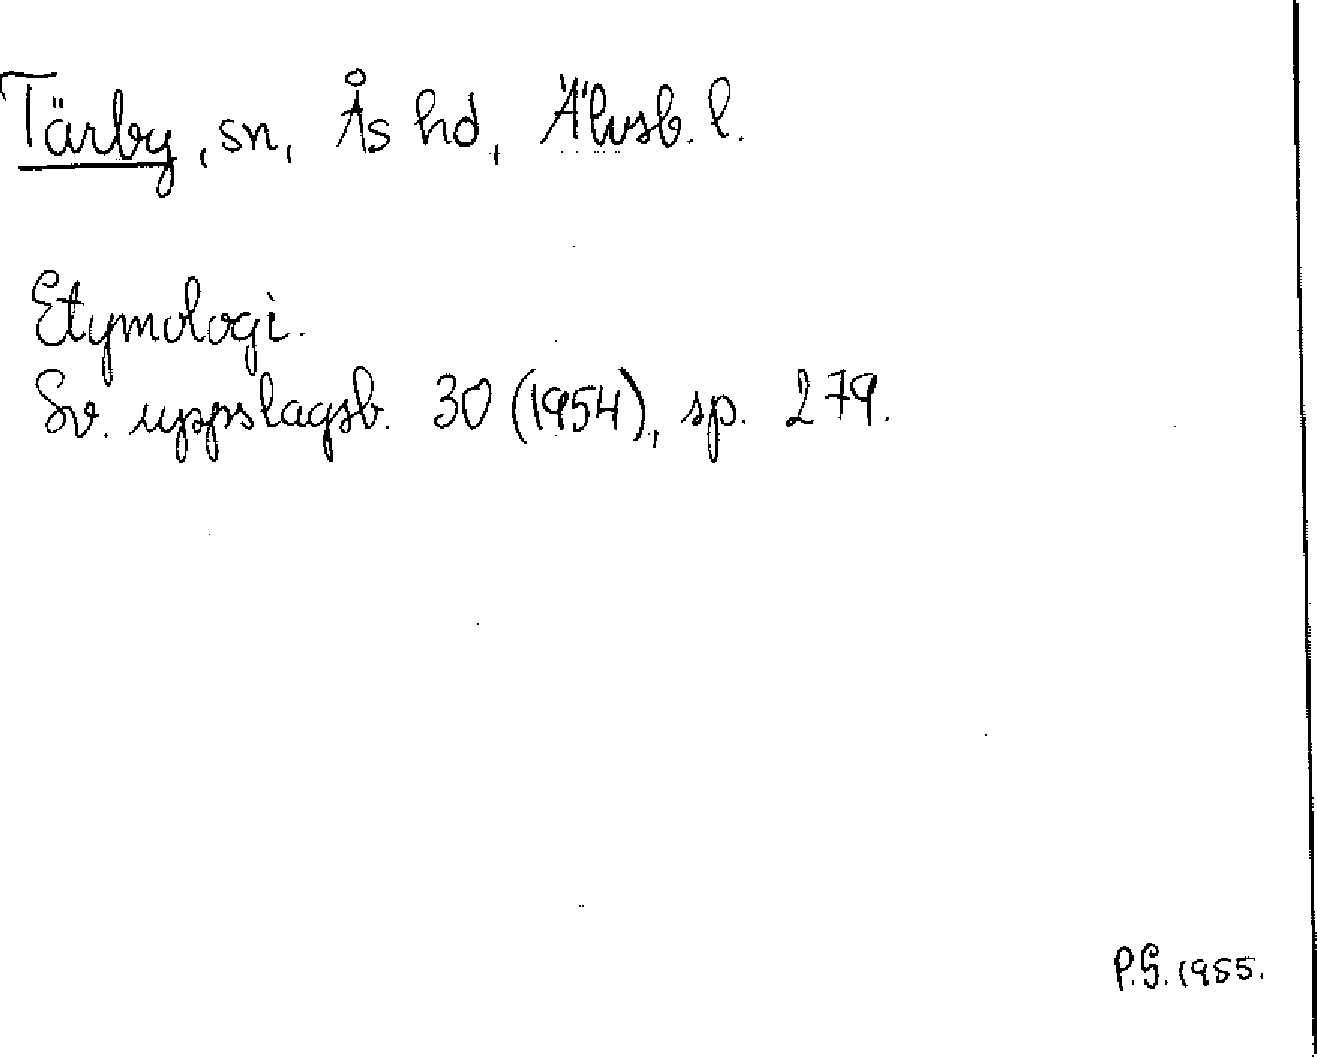 Tärby, sn, Ås hd, Älvsb. l.
Etymologi.
Sv. uppslagsb. 30 (1954), sp. 279.
P.G. 1955.